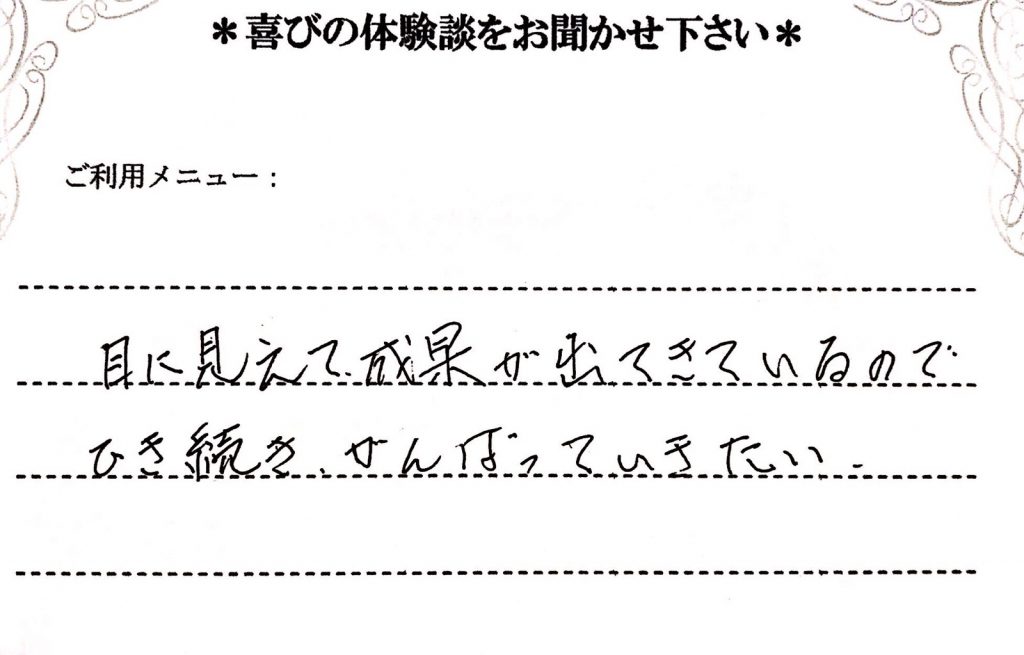 ＊喜びの体験談をお聞かせ下さい＊
ご利用メニュー：
目に見えて成果が出てきているので
ひき続き、がんばっていきたい。